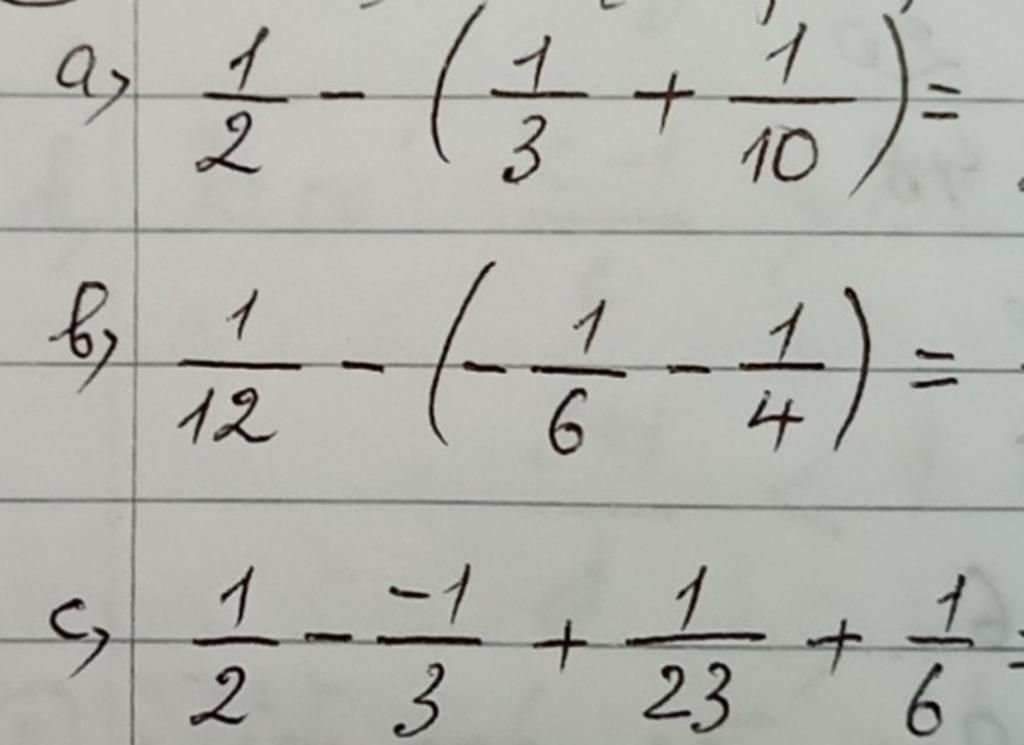 a, 1/2 - (1/3 + 1/10) =
b, 1/12 - (- 1/6 - 1/4) =
c, 1/2 - -1/3 + 1/23 + 1/6 =